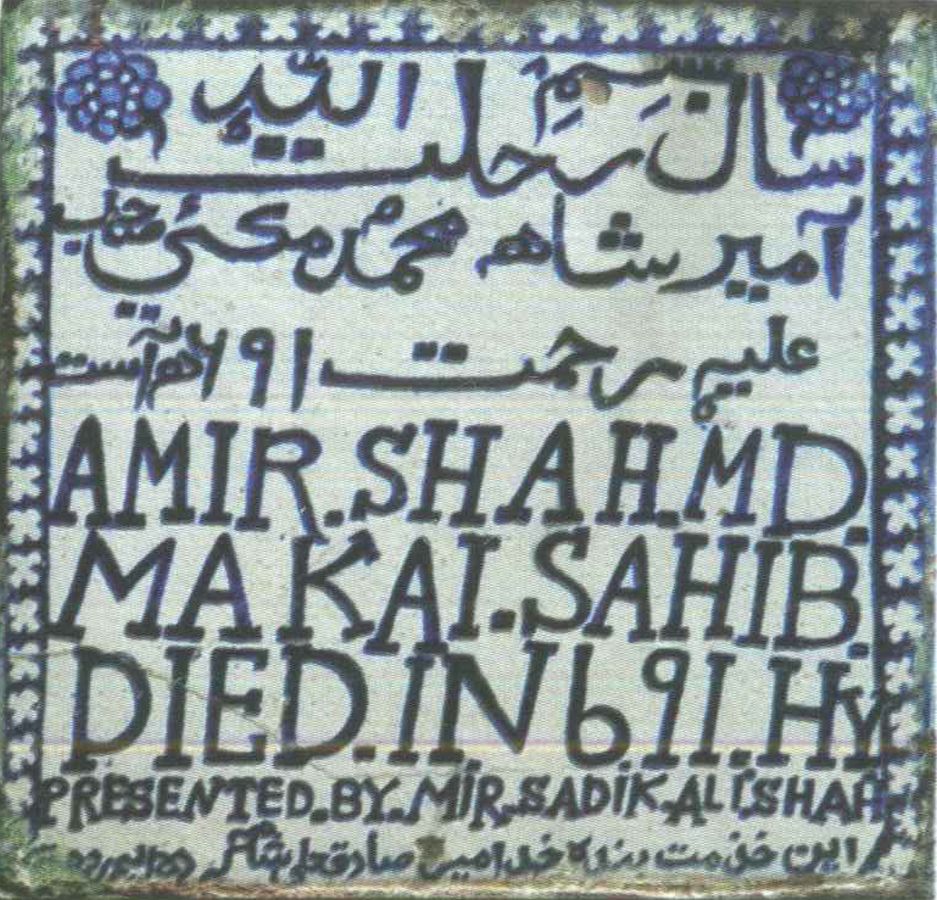 سال رحلت السّید
آمیر شاه محمد مکئی
علیہ رحمت ۶۹۱ است
AMIR.SHAH.MD.
MAKAI.SAHIB.
DIED.IN 691.HY
PRESENTED.BY.MIR.SADIK.ALI.SHAH
این خدمت صادق علیشاه